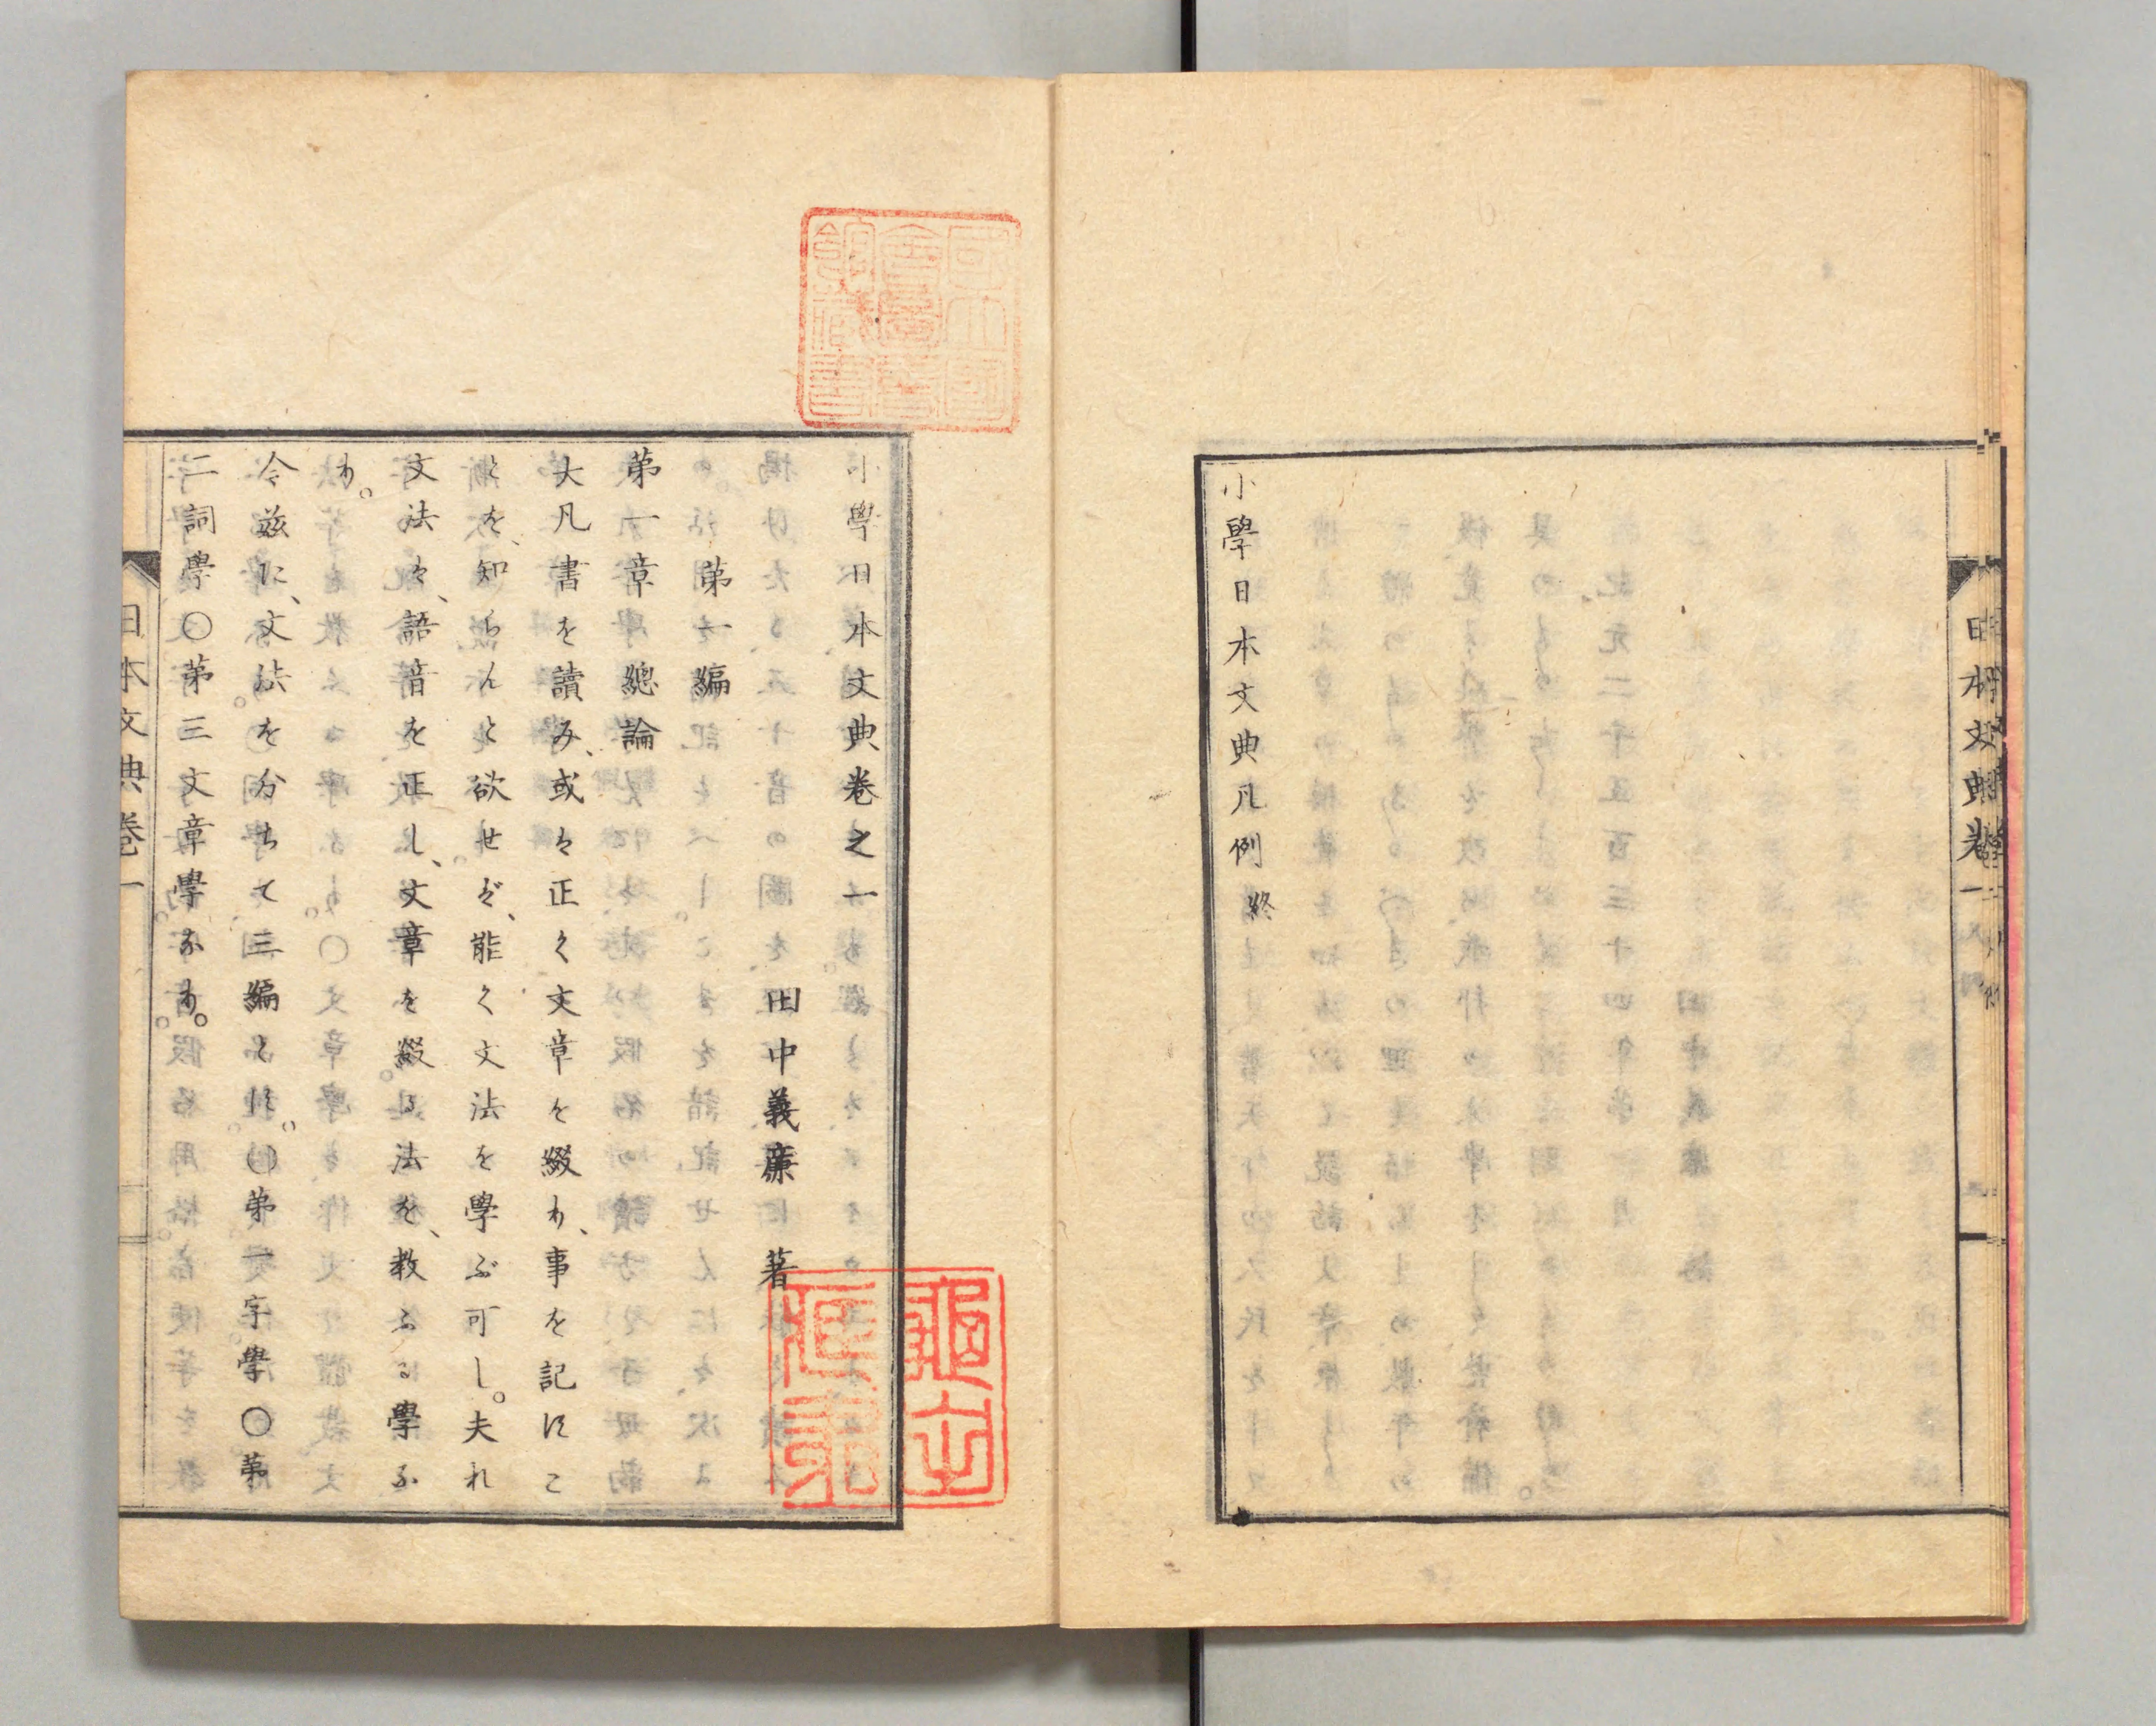 小學日本文典凡例 終
小學日本文典卷之一
田中義廉 著
第一編
第一章 總論
大凡書を讀み、或は正く文章を綴り、事を記すこ
とを、知らんと欲せば、能く文法を學ぶ可し。夫れ
文法は、語音を正し、文章を綴る法を、教ふる學な
り。
今茲に、文法を分ちて三編とす。〇第一字學〇第
二詞學〇第三文章學なり。
日本文典卷一